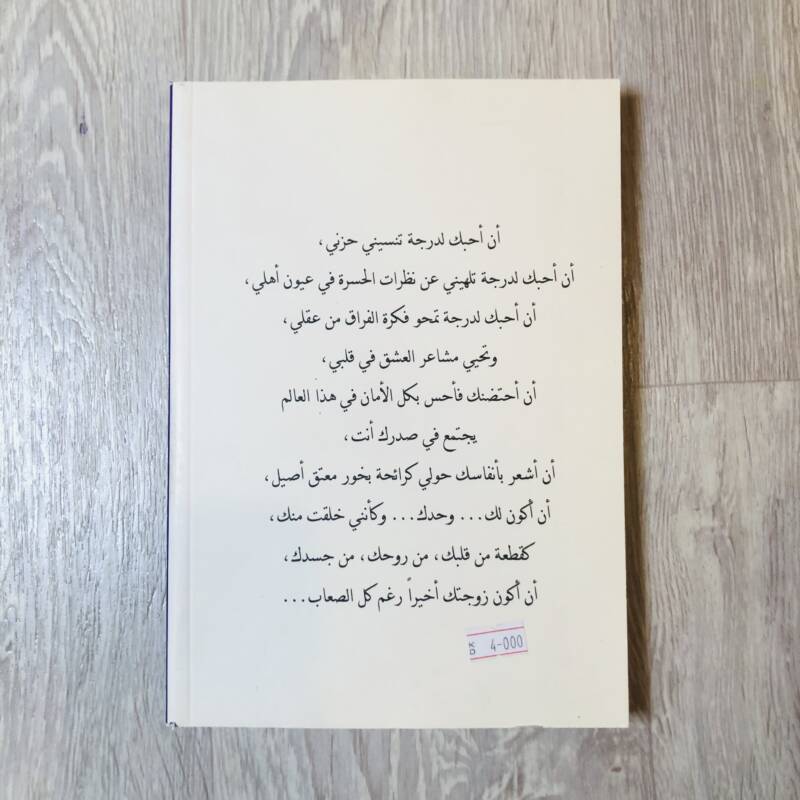 أن أحبك لدرجة تنسيني حزني،
أن أحبك لدرجة تلهيني عن نظرات الحسرة في عيون أهلي،
أن أحبك لدرجة تمحو فكرة الفراق من عقلي،
وتحيي مشاعر العشق في قلبي،
أن أحتضنك فأحس بكل الأمان في هذا العالم
يجتمع في صدرك أنت،
أن أشعر بأنفاسك حولي كرائحة بخور معتق أصيل،
أن أكون لك... وحدك... وكأنني خلقت منك،
كقطعة من قلبك، من روحك، من جسدك،
أن أكون زوجتك أخيراً رغم كل الصعاب...
KD 4-000